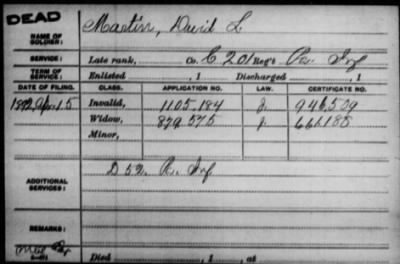 DEAD
NAME OF SOLDIER: Martin, David L
SERVICE: Late rank, Co. C 201 Reg't Pa. Inf
TERM OF SERVICE: Enlisted , 1 Discharged , 1
DATE OF FILING. CLASS. APPLICATION NO. LAW. CERTIFICATE NO.
1892 Apr. 15 Invalid, 1105.184 J. 946.509
Widow, 879.575 J. 661.185
Minor,
ADDITIONAL SERVICES: D 52. Pa. Inf
REMARKS:
Died , 1 , at